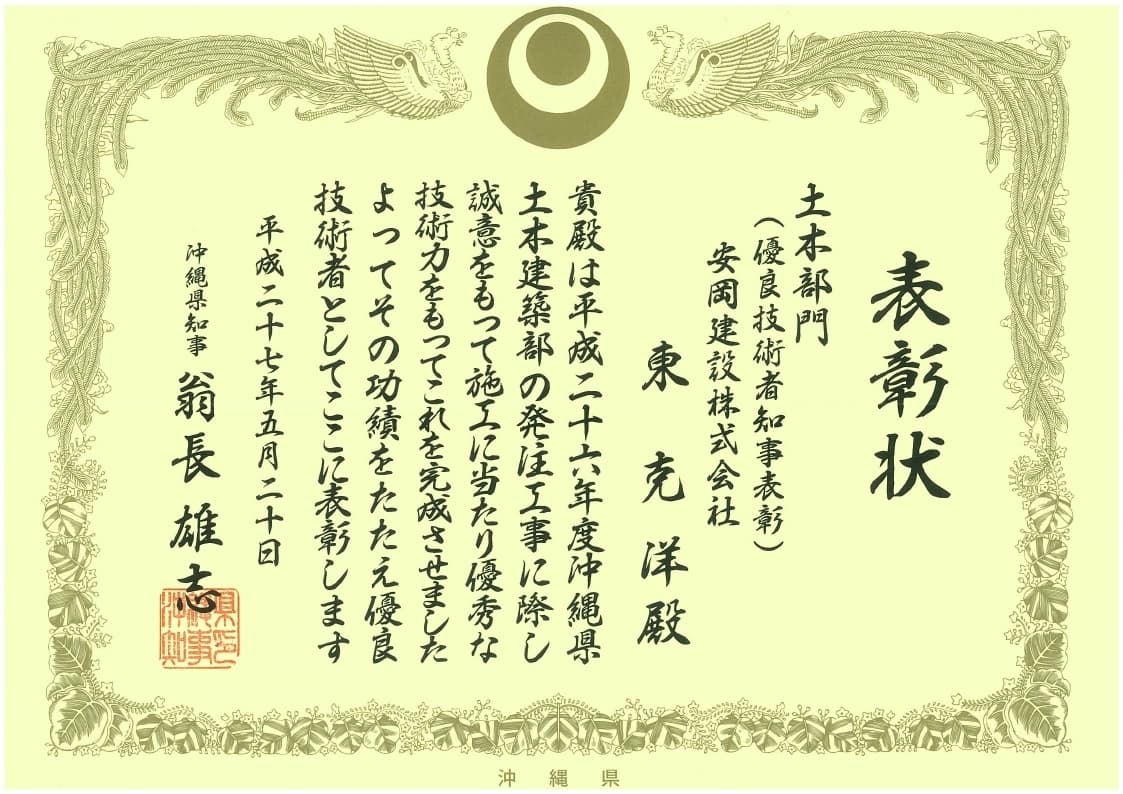 表彰状
土木部門
（優良技術者知事表彰）
安岡建設株式会社
東克洋殿
貴殿は平成二十六年度沖縄県
土木建築部の発注工事に際し
誠意をもって施工に当たり優秀な
技術力をもってこれを完成させました
よってその功績をたたえ優良
技術者としてここに表彰します
平成二十七年五月二十日
沖縄県知事 翁長雄志
沖縄県